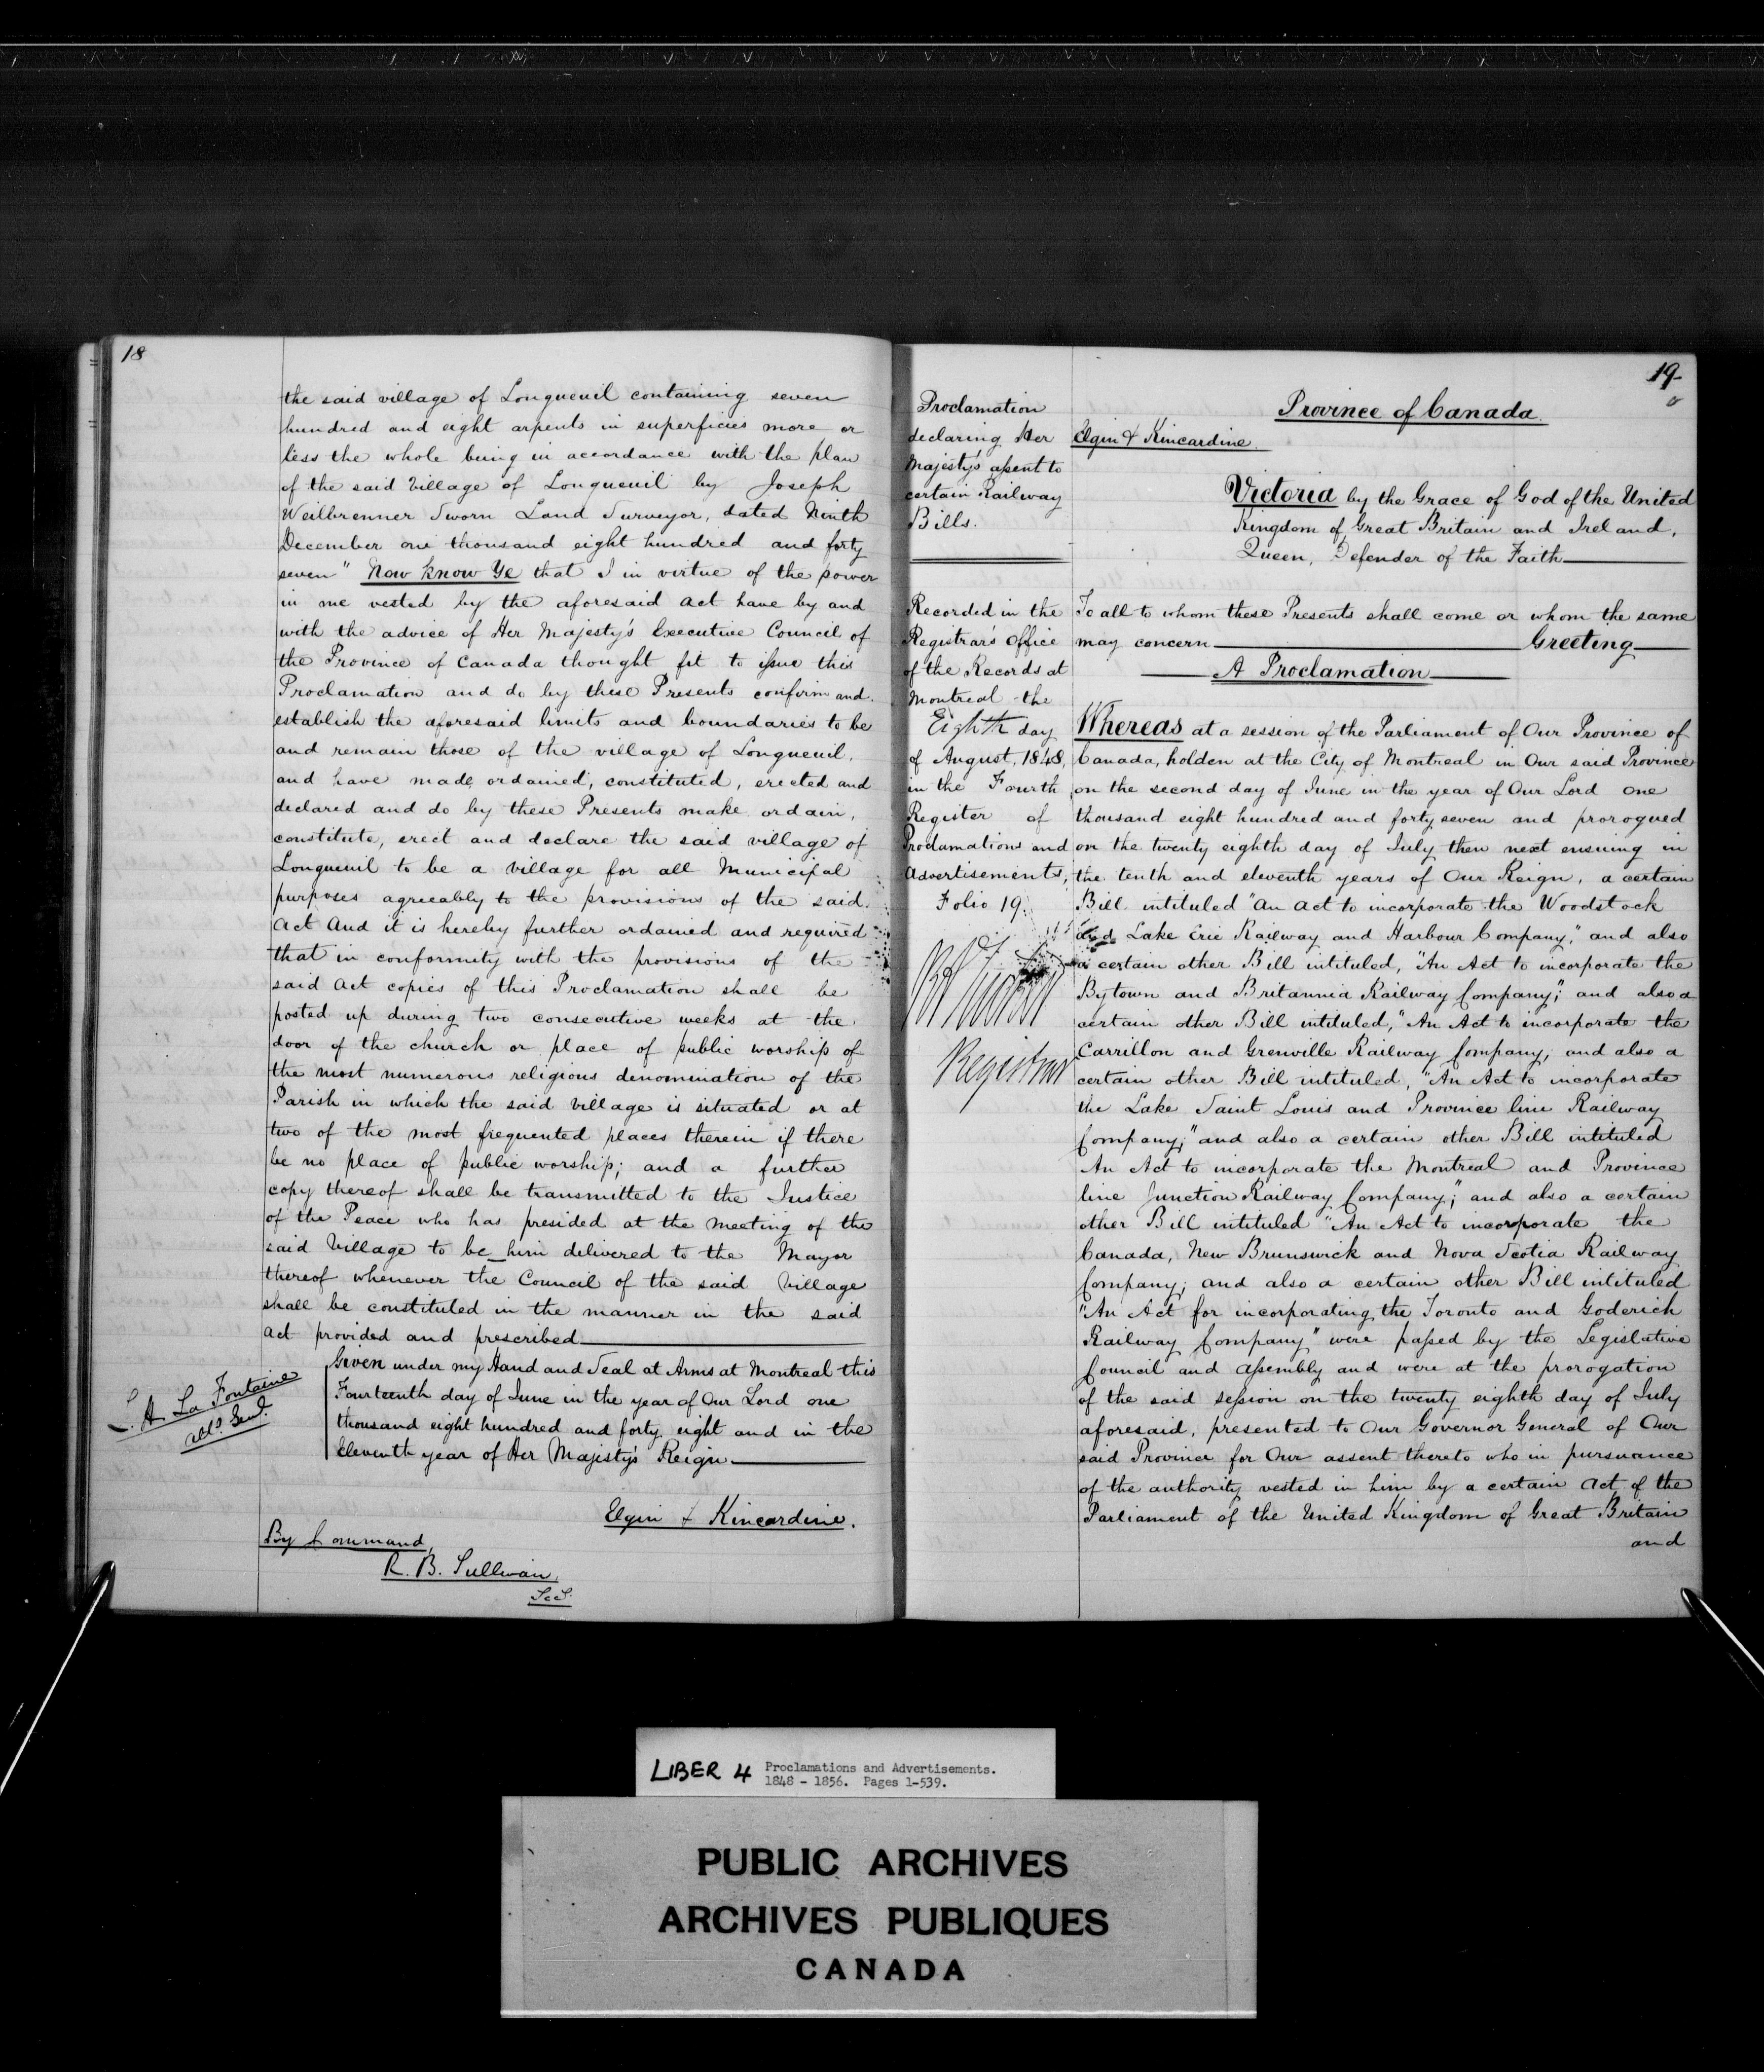 18
the said village of Longueuil containing seven
hundred and eight arpents in superficies more or
less the whole being in accordance with the plan
of the said Village of Longueuil by Joseph
Weilbrenner Sworn Land Surveyor, dated Ninth
December one thousand eight hundred and forty
seven" Now know Ye that I in virtue of the power
in me vested by the aforesaid Act have by and
with the advice of Her Majesty's Executive Council of
the Province of Canada thought fit to issue this
Proclamation and do by these Presents confirm and
establish the aforesaid limits and boundaries to be
and remain those of the village of Longueuil,
and have made, ordained, constituted, erected and
declared and do by these Presents make ordain,
constitute, erect and declare the said village of
Longueuil to be a Village for all Municipal
purposes agreeably to the provisions of the said
Act And it is hereby further ordained and required
that in conformity with the provisions of the
said Act copies of this Proclamation shall be
posted up during two consecutive weeks at the
door of the church or place of public worship of
the most numerous religious denomination of the
Parish in which the said Village is situated or at
two of the most frequented places therein if there
be no place of public worship; and a further
copy thereof shall be transmitted to the Justice
of the Peace who has presided at the meeting of the
said Village to be him delivered to the Mayor
thereof whenever the Council of the said Village
shall be constituted in the manner in the said
Act provided and prescribed
L. A. La Fontaine
Att'y Genl.
Given under my Hand and Seal at Arms at Montreal this
Fourteenth day of June in the year of Our Lord one
thousand eight hundred and forty eight and in the
Eleventh year of Her Majesty's Reign
Elgin & Kincardine.
By Command,
R. B. Sullivan,
Sec'y.
19
Proclamation
declaring Her
Majesty's assent to
certain Railway
Bills.
Recorded in the
Registrar's Office
of the Records at
Montreal the
Eighth day
of August, 1848,
in the Fourth
Register of
Proclamations and
Advertisements,
Folio 19.
Registrar
Province of Canada.
Elgin & Kincardine.
Victoria by the Grace of God of the United
Kingdom of Great Britain and Ireland,
Queen, Defender of the Faith
To all to whom these Presents shall come or whom the same
may concern Greeting
A Proclamation
Whereas at a session of the Parliament of Our Province of
Canada, holden at the City of Montreal in Our said Province
on the second day of June in the year of Our Lord one
thousand eight hundred and forty seven and prorogued
on the twenty eighth day of July then next ensuing in
the tenth and eleventh years of Our Reign, a certain
Bill intituled "An Act to incorporate the Woodstock
and Lake Erie Railway and Harbour Company," and also
a certain other Bill intituled, "An Act to incorporate the
Bytown and Britannia Railway Company;" and also a
certain other Bill intituled, "An Act to incorporate the
Carrillon and Grenville Railway Company; and also a
certain other Bill intituled, "An Act to incorporate
the Lake Saint Louis and Province line Railway
Company;" and also a certain other Bill intituled
An Act to incorporate the Montreal and Province
line Junction Railway Company;" and also a certain
other Bill intituled "An Act to incorporate the
Canada, New Brunswick and Nova Scotia Railway
Company; and also a certain other Bill intituled
"An Act for incorporating the Toronto and Goderich
Railway Company" were passed by the Legislative
Council and Assembly and were at the prorogation
of the said session on the twenty eighth day of July
aforesaid, presented to Our Governor General of Our
said Province for Our assent thereto who in pursuance
of the authority vested in him by a certain Act of the
Parliament of the United Kingdom of Great Britain
and
LIBER 4 Proclamations and Advertisements.
1848 - 1856. Pages 1-539.
PUBLIC ARCHIVES
ARCHIVES PUBLIQUES
CANADA